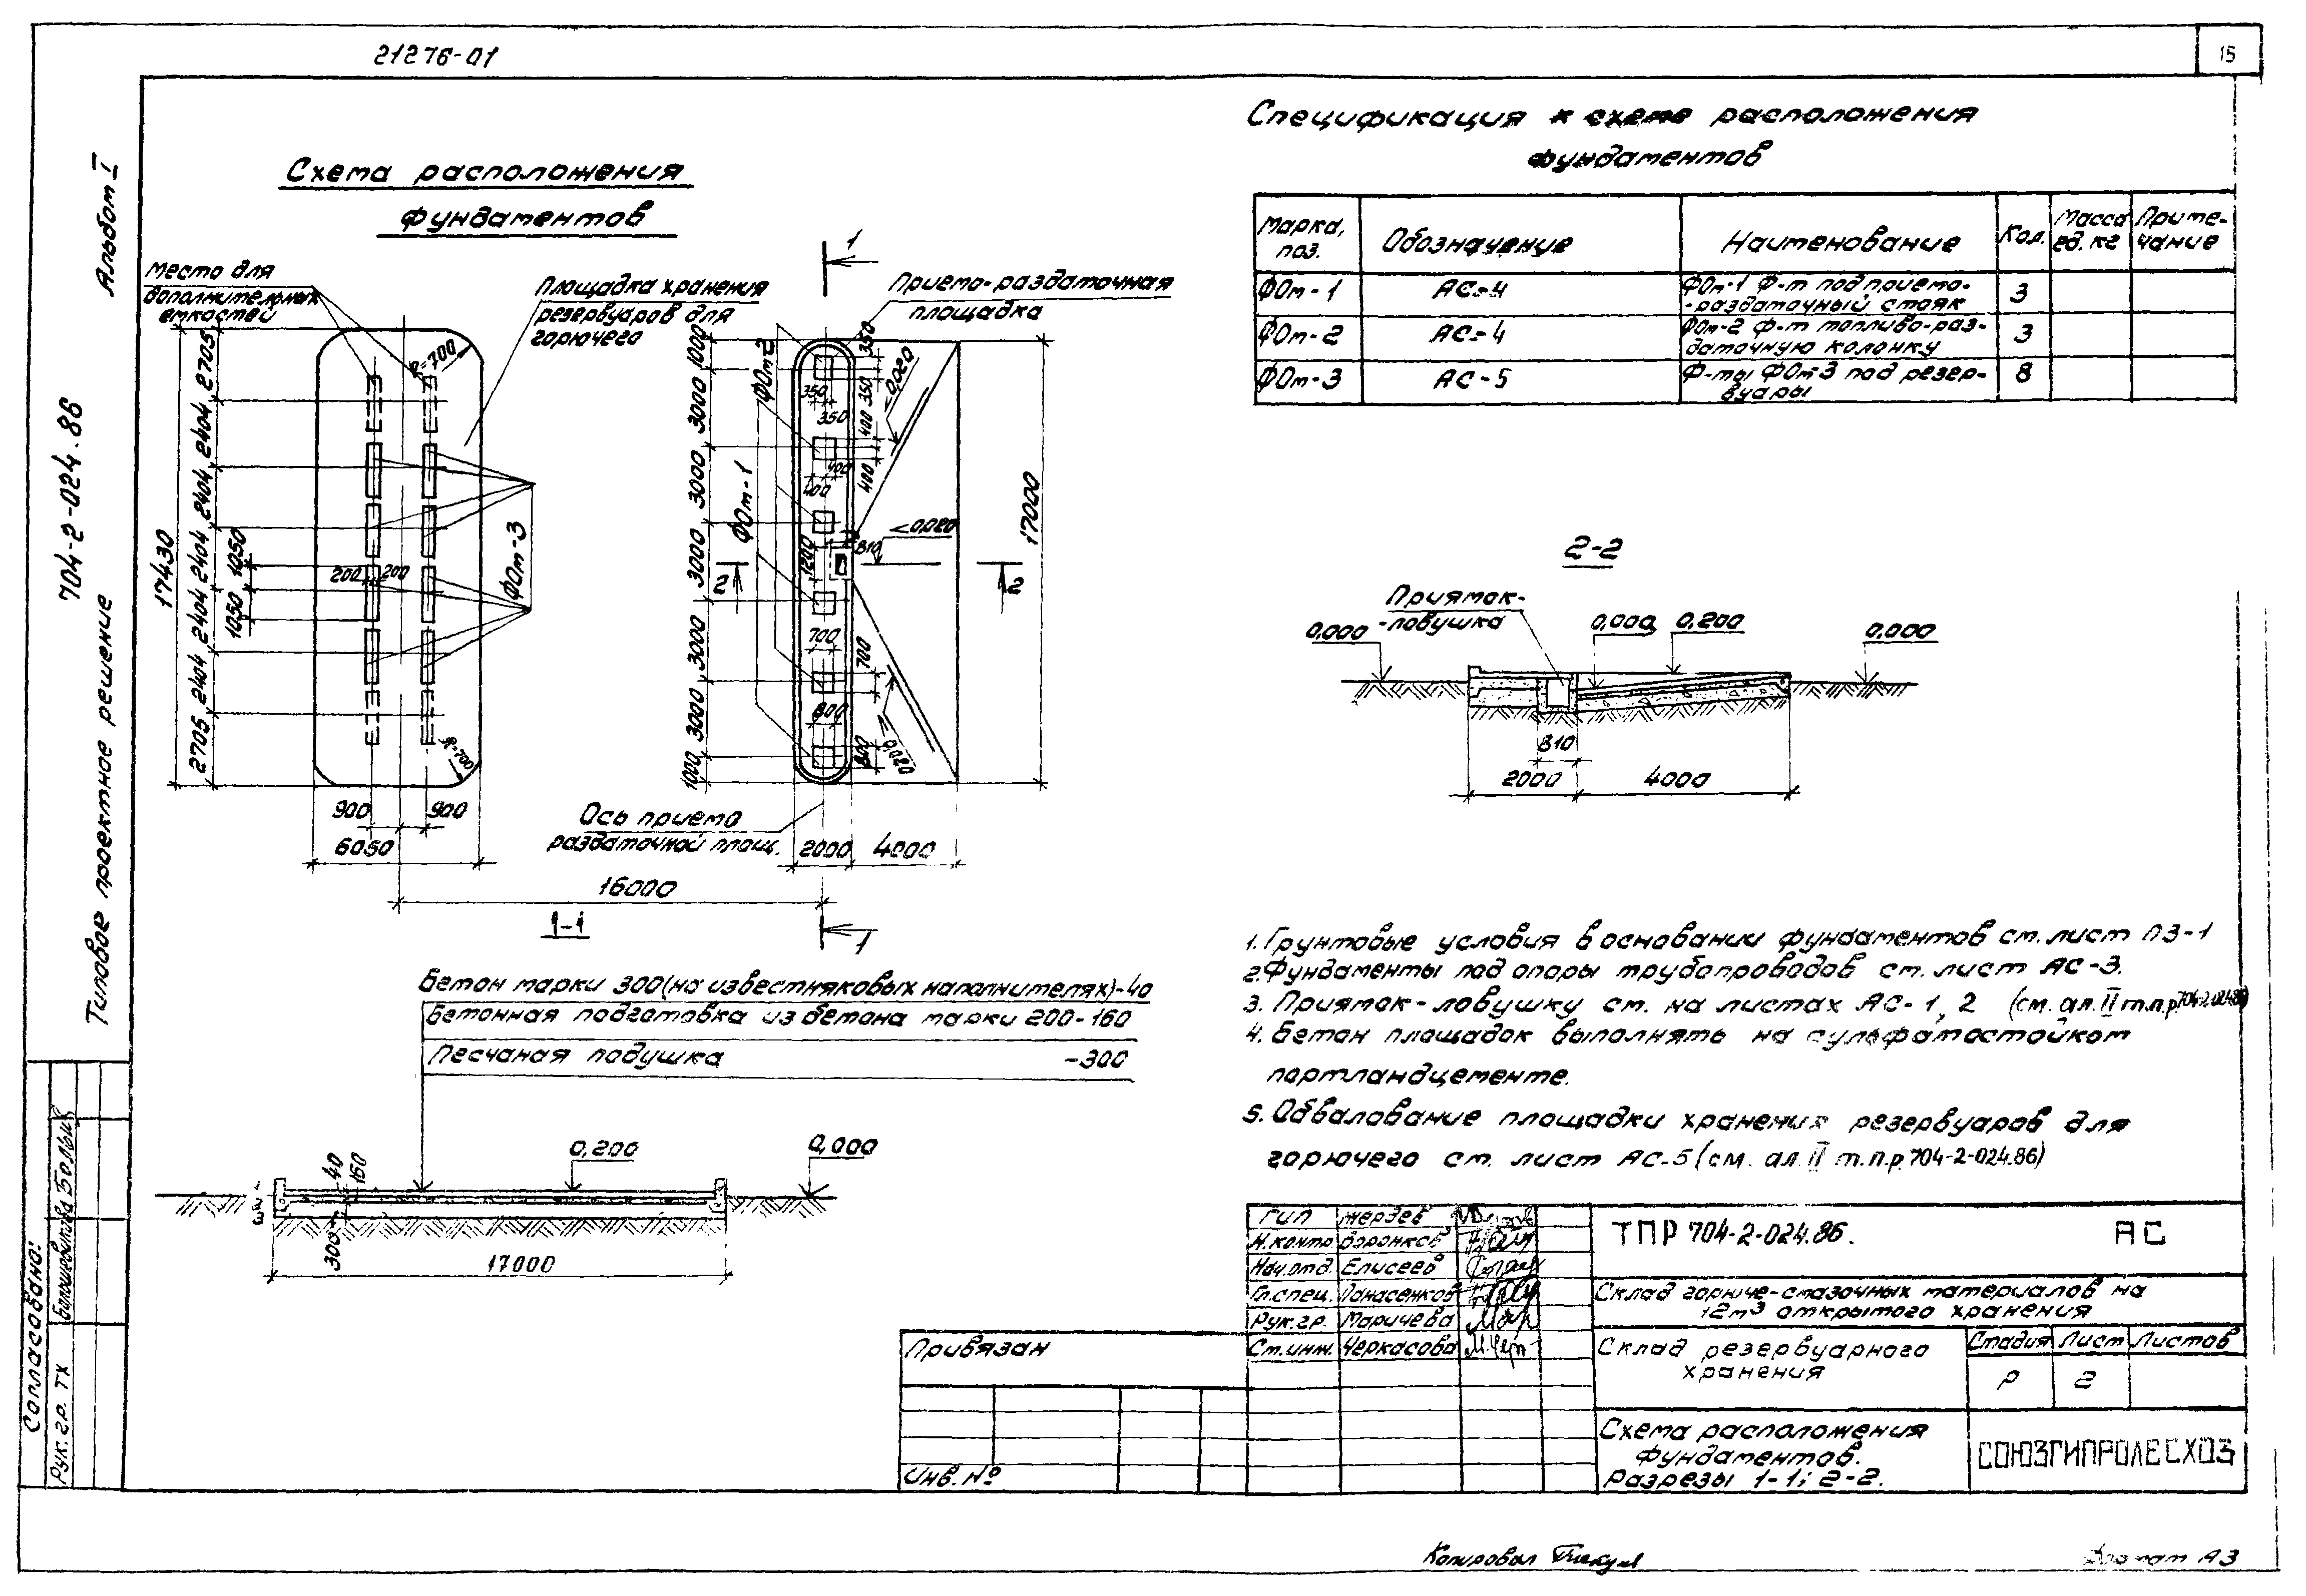 21276-01
15
Альбом I
704-2-024.86
Типовое проектное решение
Согласовано:
Рук. гр. ТХ
Схема расположения
фундаментов
1
Место для
дополнительных
емкостей
Площадка хранения
резервуаров для
горючего
R=700
17430
2705
2404
2404
2404
2404
2404
2705
1050
1050
200
200
ФОм-3
R=700
900
900
6050
16000
Приемо-раздаточная
площадка
1000
3000
3000
3000
3000
3000
1000
ФОм-2
ФОм-1
350
350
350
350
400
400
400
400
0,020
0,020
0,020
1200
810
2
2
700
700
800
800
17000
Ось приемо
раздаточной площ.
2000
4000
1
1-1
Бетон марки 300(на известняковых наполнителях)-40
Бетонная подготовка из бетона марки 200-160
Песчаная подушка -300
0,200
0,000
40
160
300
1
2
3
17000
Спецификация к схеме расположения
фундаментов
Марка, поз.
Обозначение
Наименование
Кол.
Масса ед. кг
Приме-чание
ФОм-1 АС-4 ФОм-1 Ф-т под приемо- 3
-раздаточный стояк
ФОм-2 АС-4 ФОм-2 Ф-т топливо-раз- 3
даточную колонку
ФОм-3 АС-5 Ф-ты ФОм-3 под резер- 8
вуары
2-2
Приямок-
-ловушка
0,000
0,000
0,200
0,000
810
2000
4000
1. Грунтовые условия в основании фундаментов см. лист ПЗ-1
2. Фундаменты под опоры трубопроводов см. лист АС-3.
3. Приямок-ловушку см. на листах АС-1, 2 (см. ал. II т.п.р. 704-2-024.86)
4. Бетон площадок выполнять на сульфатостойком
портландцементе.
5. Обвалование площадки хранения резервуаров для
горючего см. лист АС-5 (см. ал. II т.п.р. 704-2-024.86)
ГИП Жердев
Н.контр Воронков
Нач.отд. Елисеев
Гл.спец. Панасенков
Рук. гр. Маричева
Ст.инж. Черкасова
ТПР 704-2-024.86. АС
Склад горюче-смазочных материалов на
12м³ открытого хранения
Склад резервуарного
хранения
Стадия Лист Листов
Р 2
Схема расположения
фундаментов.
Разрезы 1-1; 2-2.
СОЮЗГИПРОЛЕСХОЗ
Привязан
Инв. №
Копировал
Формат А3